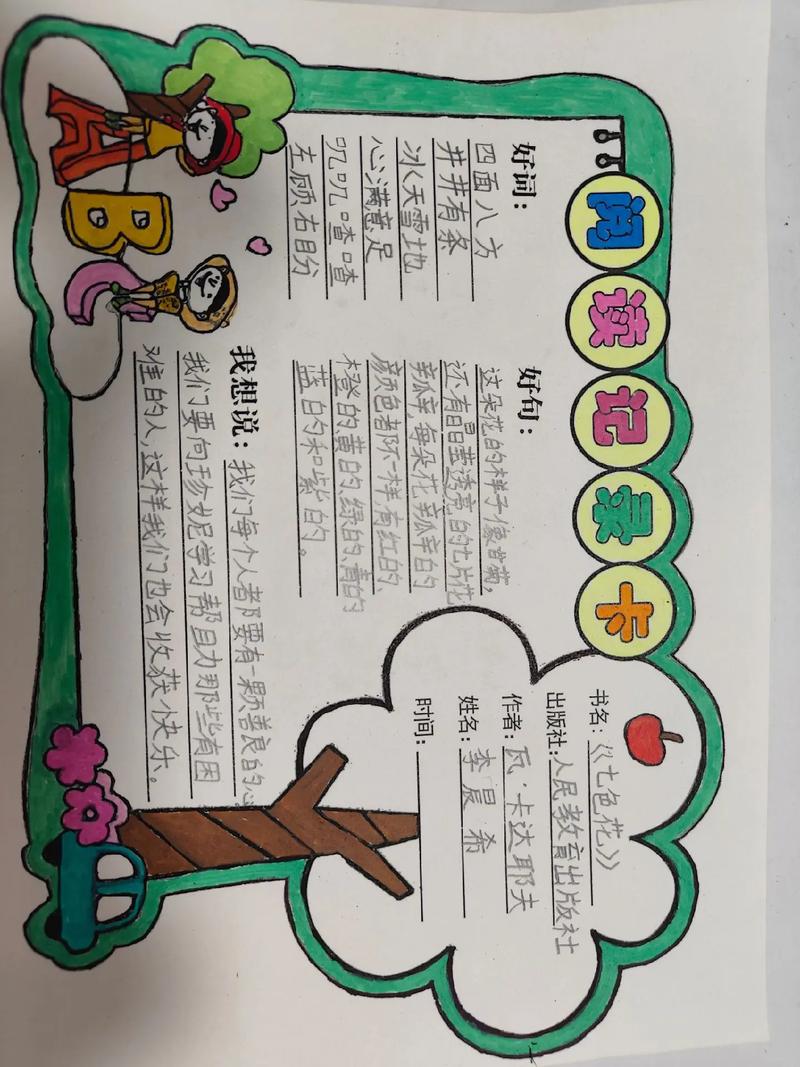 阅读记录卡
书名：《七色花》
出版社：人民教育出版社
作者：瓦·卡达耶夫
姓名：李晨希
时间：
好词：
四面八方
井井有条
冰天雪地
心满意足
叽叽喳喳
左顾右盼
好句：
这朵花的样子像雏菊，
还有晶莹透亮的七片花
瓣,每朵花瓣的
颜色都不一样,有红的、
橙的、黄的、绿的、青的
蓝的和紫的。
我想说：我们每个人都要有一颗善良的心
我们要向珍妮学习帮助那些有困
难的人,这样我们也会收获快乐。
ABC